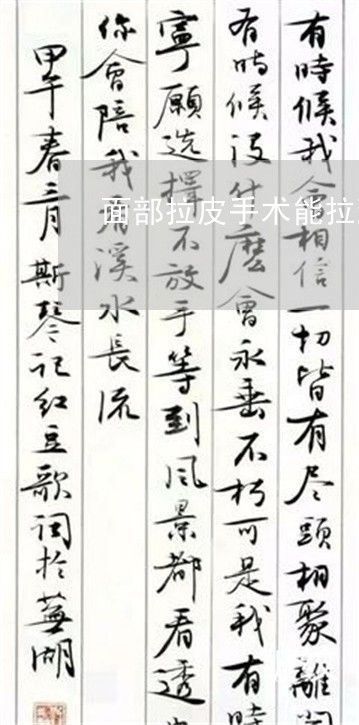 有時候我会相信一切皆有尽頭相聚離
有時候没什麽會永垂不朽可是我有時
寧願选擇不放手等到风景都看透
你會陪我看溪水長流
甲午春三月斯琴记红豆歌词於蕪湖
面部拉皮手术能拉